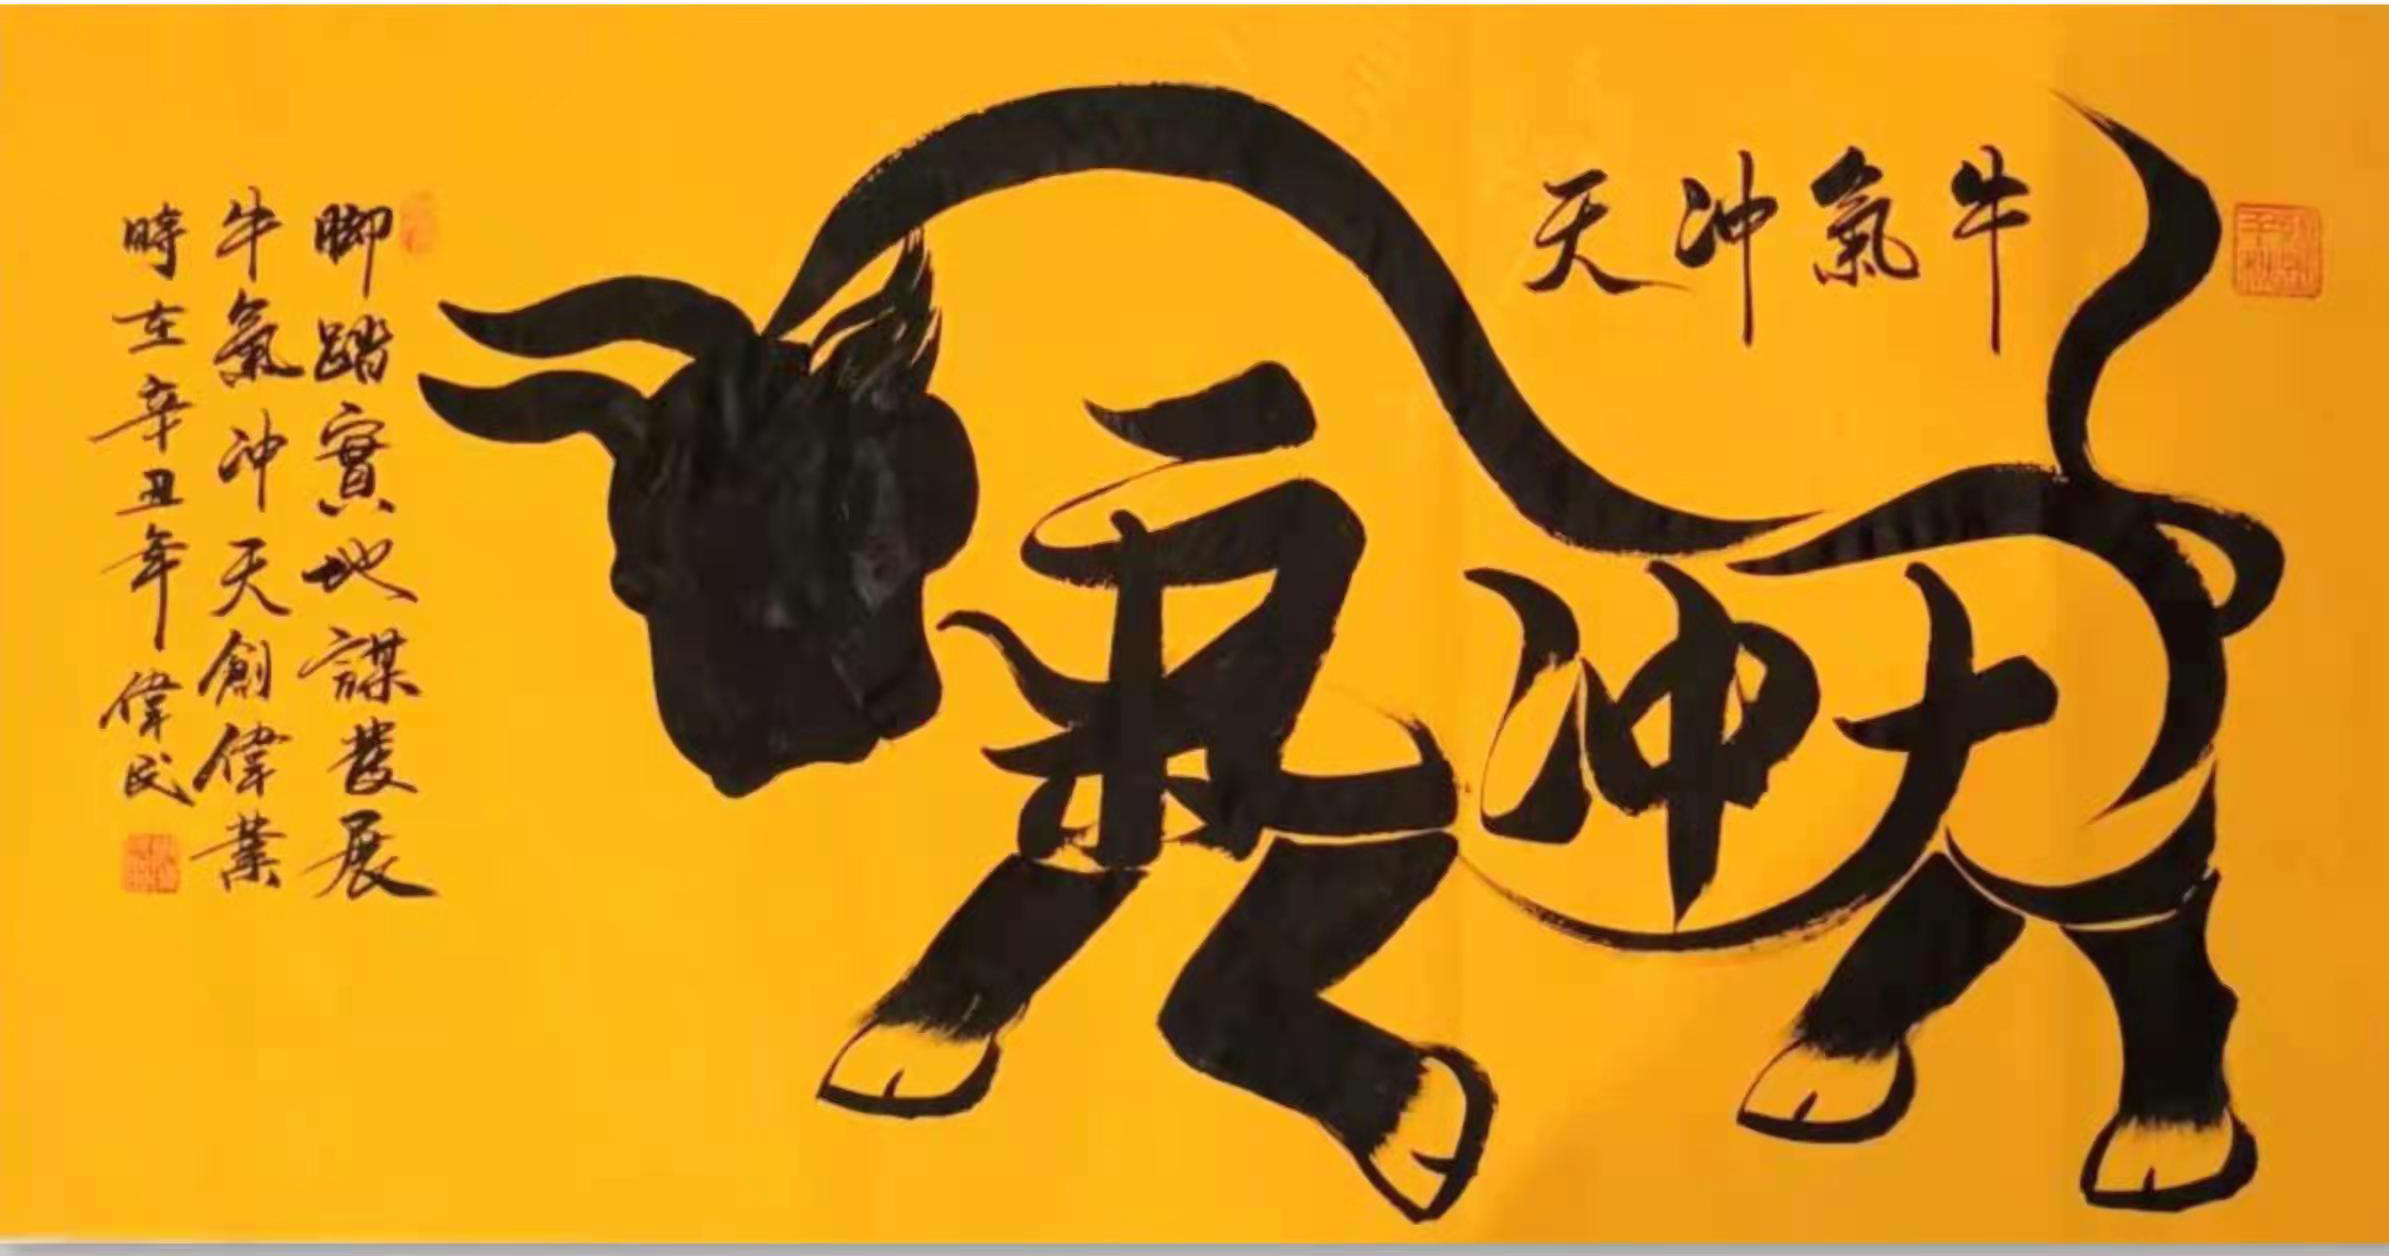 牛氣冲天
氣冲天
脚踏實地謀發展
牛氣冲天創偉業
時在辛丑年偉民